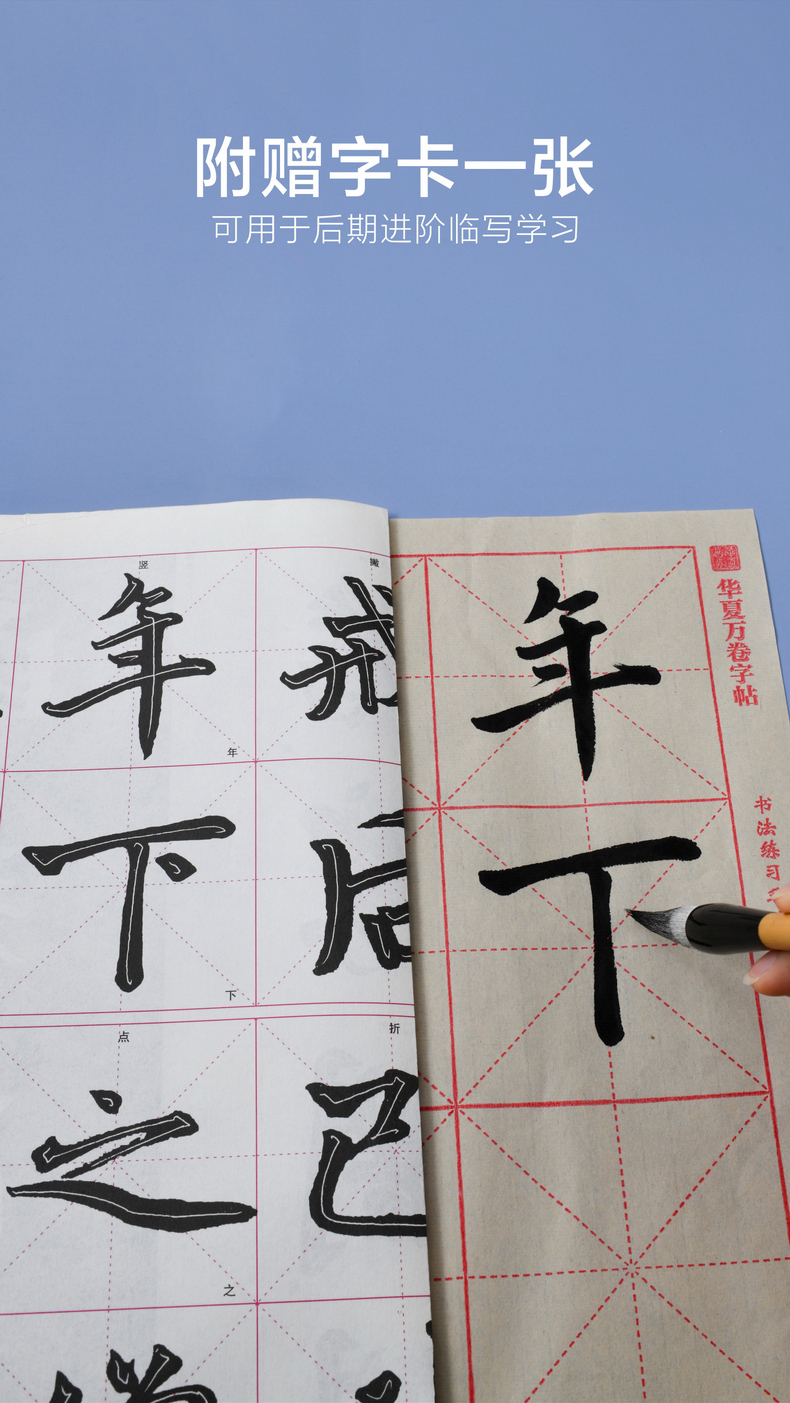 附赠字卡一张
可用于后期进阶临写学习
竖
撇
年
戒
年
年
下
后
下
下
点
折
之
己
之
华夏万卷字帖
书法练习